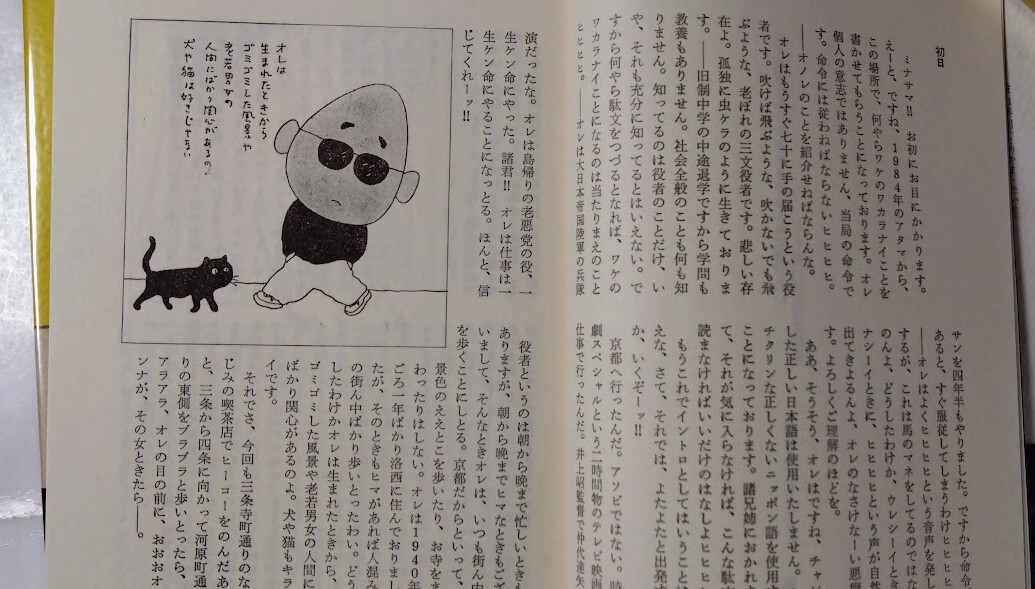 初日
ミナサマ!! お初にお目にかかります。
えーと、ですね、1984年のアタマから、
この場所で、何やらワケのワカラナイことを
書かせてもらうことになっております。オレ
個人の意志ではありません、当局の命令で
す。命令には従わねばならないヒヒヒヒ。
――オノレのことを紹介せねばならんな。
オレはもうすぐ七十に手の届こうという役
者です。吹けば飛ぶような、吹かないでも飛
ぶような、老ぼれの三文役者です。悲しい存
在よ。孤独に虫ケラのように生きておりま
す。――旧制中学の中途退学ですから学問も
教養もありません。社会全般のことも何も知
りません。知ってるのは役者のことだけ、い
や、それも充分に知ってるとはいえない。で
すから何やら駄文をつづるとなれば、ワケの
ワカラナイことになるのは当たりまえのこと
ヒヒヒヒ。――オレは大日本帝国陸軍の兵隊
サンを四年半もやりました。ですから命令
あると、すぐ服従してしまうわけヒヒヒ
――オレはよくヒヒヒヒという音声を発し
するが、これは馬のマネをしてるのではな
のんよ、どうしたわけか、ウレシーイとき
ナシーイときに、ヒヒヒヒという声が自然
出てきよるんよ、オレのなさけなーい悪癖
す。よろしくご理解のほどを。
ああ、そうそう、オレはですね、チャ
した正しい日本語は使用いたしません。
チクリンな正しくないニッポン語を使用す
ことになっております。諸兄姉におかれま
て、それが気に入らなければ、こんな駄文
読まなければいいだけのはなしよヒヒヒ
もうこれでイントロとしてはということ
えな、さて、それでは、よたよたと出発す
か、いくぞーッ!!
京都へ行ったんだ。アソビではない。時
劇スペシャルという二時間物のテレビ映画
仕事で行ったんだ。井上昭監督で仲代達矢
演だったな。オレは島帰りの老悪党の役、一
生ケン命にやった。諸君!! オレは仕事は一
生ケン命にやることになっとる。ほんと、信
じてくれーッ!!
オレは
生まれたときから
ゴミゴミした風景や
老若男女の
人間にばかり関心があるの。
犬や猫は好きじゃない
役者というのは朝から晩まで忙しいときも
ありますが、朝から晩までヒマなときもござ
いまして、そんなときオレは、いつも街ん中
を歩くことにしとる。京都だからといって、
景色のええとこを歩いたり、お寺をま
わったりはしない。オレは1940年
ごろ一年ばかり洛西に住んでおりまし
たが、そのときもヒマがあれば人混み
の街ん中ばかり歩いとったわい。どう
したわけかオレは生まれたときから、
ゴミゴミした風景や老若男女の人間に
ばかり関心があるのよ。犬や猫もキラ
イです。
それでさ、今回も三条寺町通りのな
じみの喫茶店でヒーコーをのんだあ
と、三条から四条に向かって河原町通
りの東側をブラブラと歩いとったら、
アラアラ、オレの目の前に、おおおオ
ンナが、その女ときたら――。